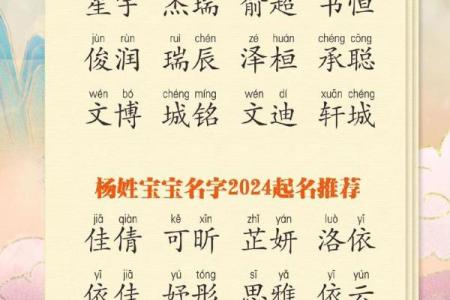 星宇 杰瑞 俞超 书恒
jùn rùn ruì chén zé huán chéng cōng
俊润 瑞辰 泽桓 承聪
wén bó chéng míng wén dí xuān chéng
文博 城铭 文迪 轩城
杨姓宝宝名字2024起名推荐
jiā qiàn kě xīn zhǐ yán luò yī
佳倩 可昕 芷妍 洛依
yī jiā yú tóng sī yǎ yī yún
依佳 妤彤 思雅 依云